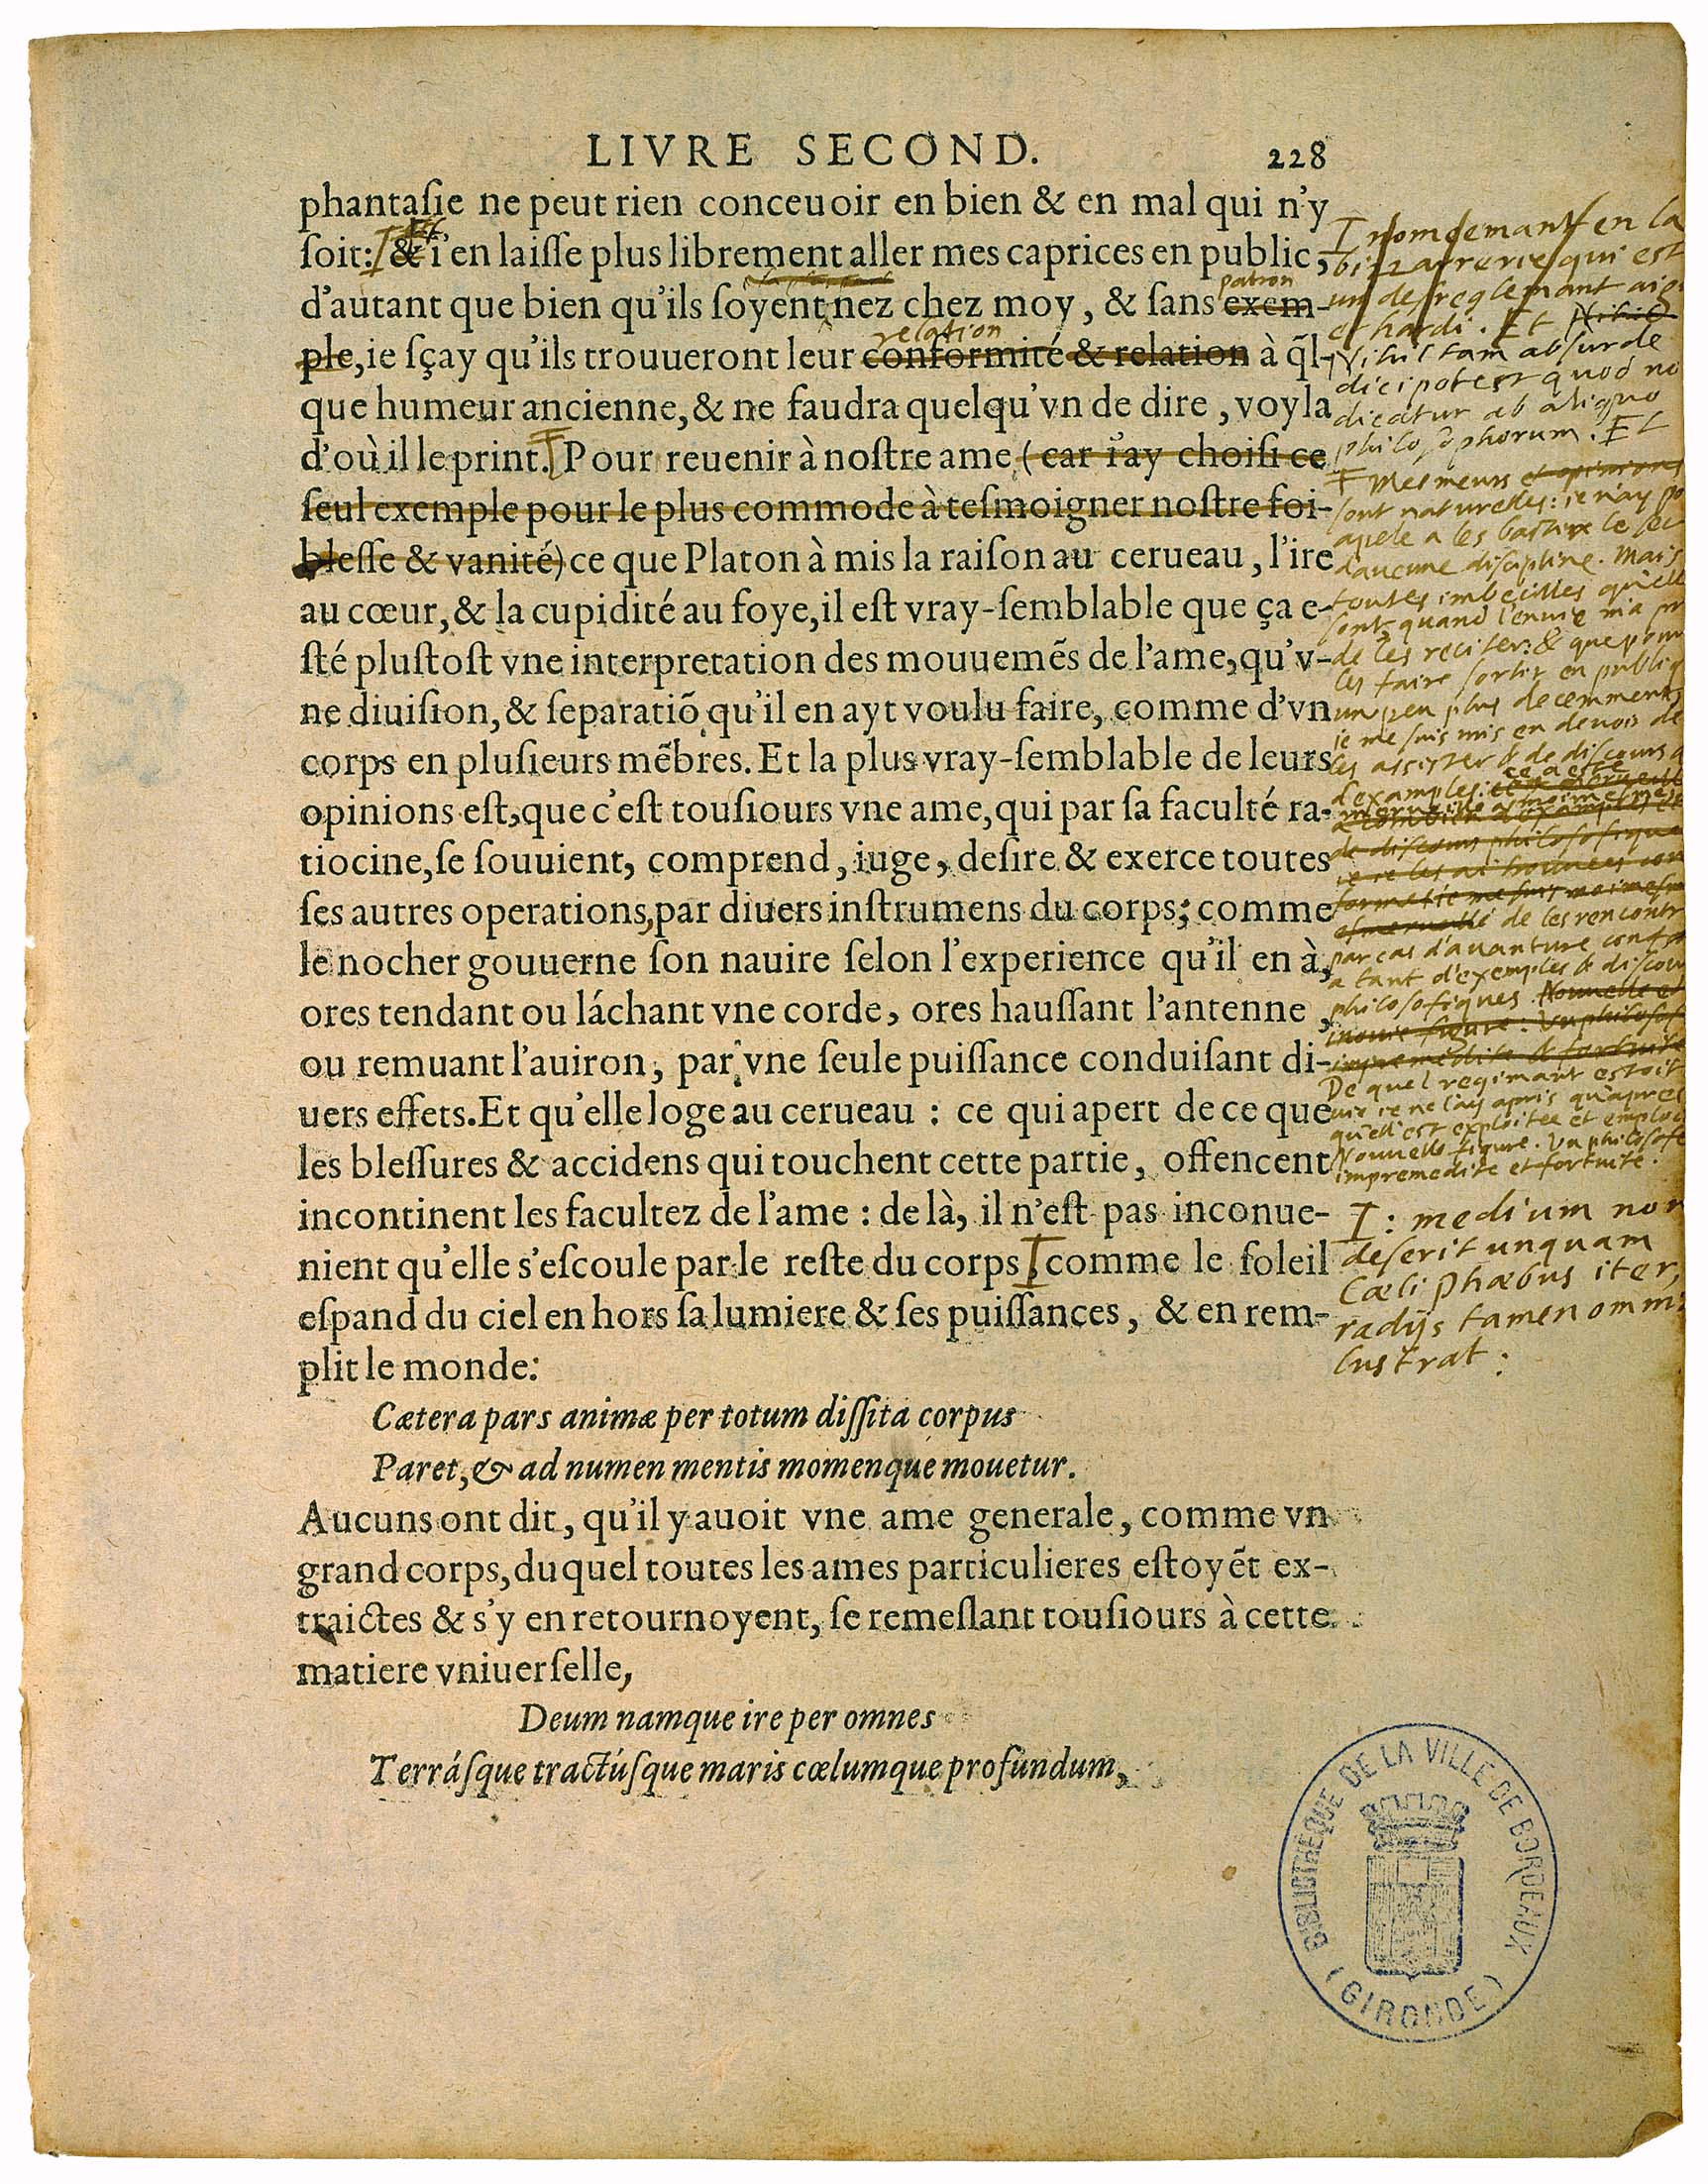 LIVRE SECOND. 228
phantaſie ne peut rien conceuoir en bien & en mal qui n'y
ſoit: & i'en laiſſe plus librement aller mes caprices en public,
d'autant que bien qu'ils ſoyent nez chez moy, & ſans exem-
patron
ple, ie ſçay qu'ils trouueront leur conformité & relation à q̃l-
relation
que humeur ancienne, & ne faudra quelqu'vn de dire, voyla
d'où il le print. Pour reuenir à noſtre ame (car i'ay choiſi ce
ſeul exemple pour le plus commode à teſmoigner noſtre foi-
bleſſe & vanité) ce que Platon à mis la raiſon au cerueau, l'ire
au cœur, & la cupidité au foye, il eſt vray-ſemblable que ça e-
ſté pluſtoſt vne interpretation des mouuemẽs de l'ame, qu'v-
ne diuiſion, & ſeparatiõ qu'il en ayt voulu faire, comme d'vn
corps en pluſieurs mẽbres. Et la plus vray-ſemblable de leurs
opinions eſt, que c'eſt touſiours vne ame, qui par ſa faculté ra-
tiocine, ſe ſouuient, comprend, iuge, deſire & exerce toutes
ſes autres operations, par diuers inſtrumens du corps; comme
le nocher gouuerne ſon nauire ſelon l'experience qu'il en à,
ores tendant ou láchant vne corde, ores hauſſant l'antenne,
ou remuant l'auiron, par vne ſeule puiſſance conduiſant di-
uers effets. Et qu'elle loge au cerueau : ce qui apert de ce que
les bleſſures & accidens qui touchent cette partie, offencent
incontinent les facultez de l'ame : de là, il n'eſt pas inconue-
nient qu'elle s'eſcoule par le reſte du corps comme le ſoleil
eſpand du ciel en hors ſa lumiere & ſes puiſſances, & en rem-
plit le monde:
Cætera pars animæ per totum diſſita corpus
Paret, & ad numen mentis momenque mouetur.
Aucuns ont dit, qu'il y auoit vne ame generale, comme vn
grand corps, duquel toutes les ames particulieres eſtoyẽt ex-
traictes & s'y en retournoyent, ſe remeſlant touſiours à cette
matiere vniuerſelle,
Deum namque ire per omnes
Terráſque tractúſque maris cœlumque profundum,
en la
qui est
et hardi. Et
Nihil tam absurde
dici potest quod no
dicatur ab aliquo
philosophorum. Et
Mes meurs et opinions
sont naturelles: ie n'ay po
apelé a les bastir le sec
d'aucune discipline. Mais
toutes imbecilles qu'ell
sont quand l'enuie m'a pr
de les reciter: & que pour
les faire sortir en publiq
un peu plus decemment
ie me suis mis en deuoir de
les assister & de discours
d'examples: ce a esté
merueille a moimesmes
de discours philosofique
de les rencontr
par cas d'auanture conf
a tant d'exemples & discou
philosofiques. Nouuelle et
De quel regimant estoit
ie ne l'ay apris qu'apres
qu'ell'est exploitee et emploi
Nouuelle figure. Un philosofe
impremedité et fortuite.
: medium non
deserit unquam
Cœli Phœbus iter,
radijs tamen omni
lustrat:
BIBLIOTHÈQUE DE LA VILLE DE BORDEAUX
(GIRONDE)